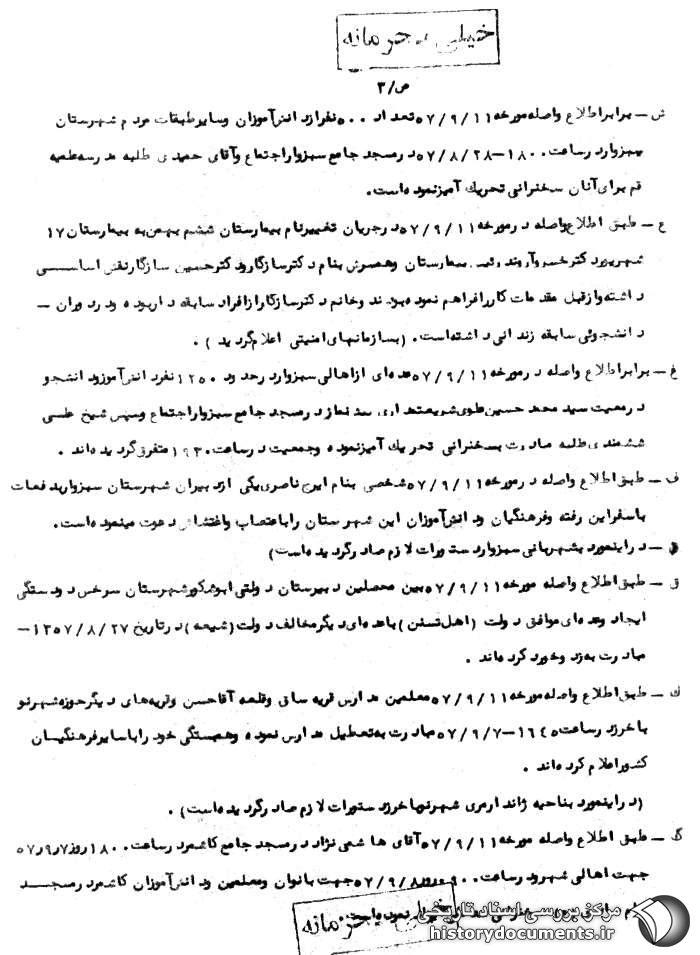 خیلی محرمانه
ص/۳
ش - برابر اطلاع واصله مورخه ۵۷/۹/۱۱ تعداد ۵۰۰ نفر از دانش‌آموزان و سایر طبقات مردم شهرستان
سبزوار در ساعت ۱۸۰۰-۵۷/۸/۲۸ در مسجد جامع سبزوار اجتماع و آقای حمیدی طلبه مدرسه علمیه
قم برای آنان سخنرانی تحریک آمیز نموده است.
ع - طبق اطلاع واصله در مورخه ۵۷/۹/۱۱ در جریان تغییر نام بیمارستان ششم بهمن به بیمارستان ۱۷
شهریور دکتر خسرو آروند رئیس بیمارستان و همسرش بنام دکتر سازگار و دکتر حسین سازگار نقش اساسی
داشته و از قبل مقدمات کار را فراهم نموده بودند و خانم دکتر سازگار از افراد سابقه دار بوده و در دوران -
دانشجوئی سابقه زندانی داشته است. (بسازمانهای امنیتی اعلام گردید) .
غ - برابر اطلاع واصله در مورخه ۵۷/۹/۱۱ عده‌ای از اهالی سبزوار در حدود ۱۲۵۰ نفر دانش آموز و دانشجو
در معیت سید محمد حسین علوی شریعتمداری بعد نماز در مسجد جامع سبزوار اجتماع و سپس شیخ علی
ششمندی طلبه مبادرت بسخنرانی تحریک آمیز نموده و جمعیت در ساعت ۱۹۳۰ متفرق گردیده‌اند .
ف - طبق اطلاع واصله در مورخه ۵۷/۹/۱۱ شخصی بنام ایرج ناصری یکی از دبیران شهرستان سبزوار بدفعات
باسفراین رفته و فرهنگیان و دانش‌آموزان این شهرستان را باعتصاب و اغتشاش دعوت مینموده است.
ق - (در اینمورد بشهربانی سبزوار دستورات لازم صادر گردیده است)
ق - طبق اطلاع واصله مورخه ۵۷/۹/۱۱ بین محصلین دبیرستان دولتی ابوشکور شهرستان سرخس دودستگی
ایجاد و عده‌ای موافق دولت (اهل تسنن) با عده‌ای دیگر مخالف دولت (شیعه) در تاریخ ۱۳۵۷/۸/۲۷-
مبادرت به زد و خورد کرده‌اند .
ک - طبق اطلاع واصله مورخه ۵۷/۹/۱۱ معلمین مدارس قریه سانی و قلعه آقاحسن و قریه‌های دیگر حوزه شهر نو
باخرز در ساعت ۱۶۴۵-۵۷/۹/۷ مبادرت به تعطیل مدارس نموده و همبستگی خود را با سایر فرهنگیان
کشور اعلام کرده‌اند .
(در اینمورد بناحیه ژاندارمری شهرنو باخرز دستورات لازم صادر گردیده است) .
گ - طبق اطلاع واصله مورخه ۵۷/۹/۱۱ آقای هاشمی نژاد در مسجد جامع کاشمر در ساعت ۱۸۰۰ روز ۵۷/۹/۷
جهت اهالی شهر و در ساعت ۹۰۰ روز ۵۷/۹/۸ جهت بانوان و معلمین و دانش آموزان کاشمر در مسجد
خیلی محرمانه
مرکز بررسی اسناد تاریخی
historydocuments.ir